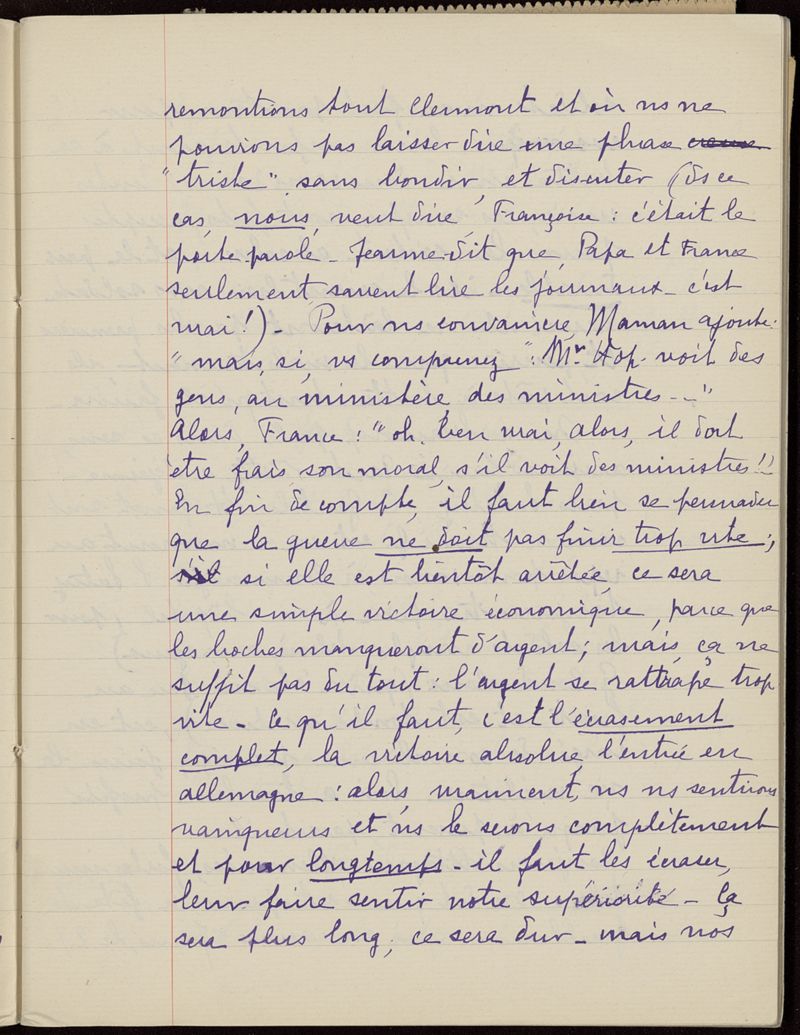 remontions tout Clermont et où ns ne
pouvions pas laisser dire une phrase creuse
"triste", sans bondir, et discuter (ds ce
cas, nous, veut dire, Françoise : c'était le
porte-parole - Jeanne dit que, Papa et France
seulement, savent lire les journaux - c'est
vrai !) - Pour ns convaincre, Maman ajoute :
"mais, si, vs comprenez" : Mr Hop. voit des
gens, au ministère, des ministres - -"
Alors, France : "oh, ben vrai, alors, il doit
être frais, son moral, s'il voit des ministres !!
En fin de compte, il faut bien se persuader
que la guerre ne doit pas finir trop vite ;
s'il si elle est bientôt arrêtée, ce sera
une simple victoire économique, parce que
les boches manqueront d'argent ; mais, ça ne
suffit pas du tout : l'argent se rattrape trop
vite - Ce qu'il faut, c'est l'écrasement
complet, la victoire absolue, l'entrée en
allemagne : alors, vraiment, ns ns sentirons
vainqueurs et ns le serons complètement
et pour longtemps - il faut les écraser,
leur faire sentir notre supériorité - Ça
sera plus long, ce sera dur - mais nos